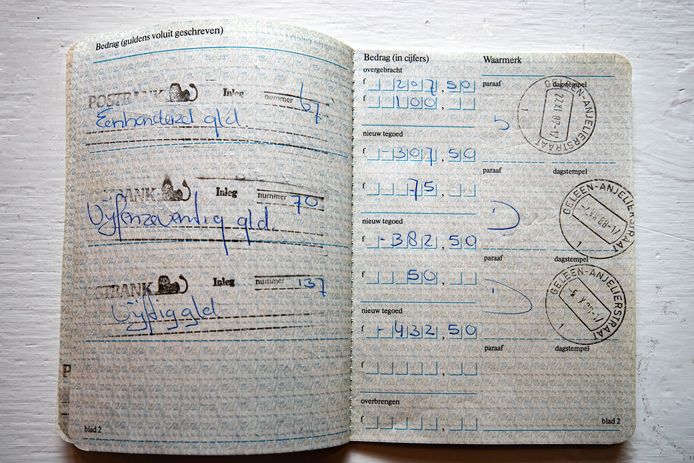 Bedrag (guldens voluit geschreven)
POSTBANK Inleg nummer 67
Eenhonderd gld.
TBANK Inleg nummer 70
Vijfenzeventig gld.
TBANK Inleg nummer 137
Vijftig gld
P
blad 2
Bedrag (in cijfers) Waarmerk
overgebracht paraaf dagstempel
f 207,50
f 100,
GELEEN-ANJELIERSTRAAT
1
nieuw tegoed paraaf dagstempel
f -307,50
f 75,
GELEEN-ANJELIERSTRAAT
1
nieuw tegoed paraaf dagstempel
f -382,50
f 50,
GELEEN-ANJELIERSTRAAT
1
nieuw tegoed paraaf dagstempel
f -432,50
f
overbrengen
f
blad 2